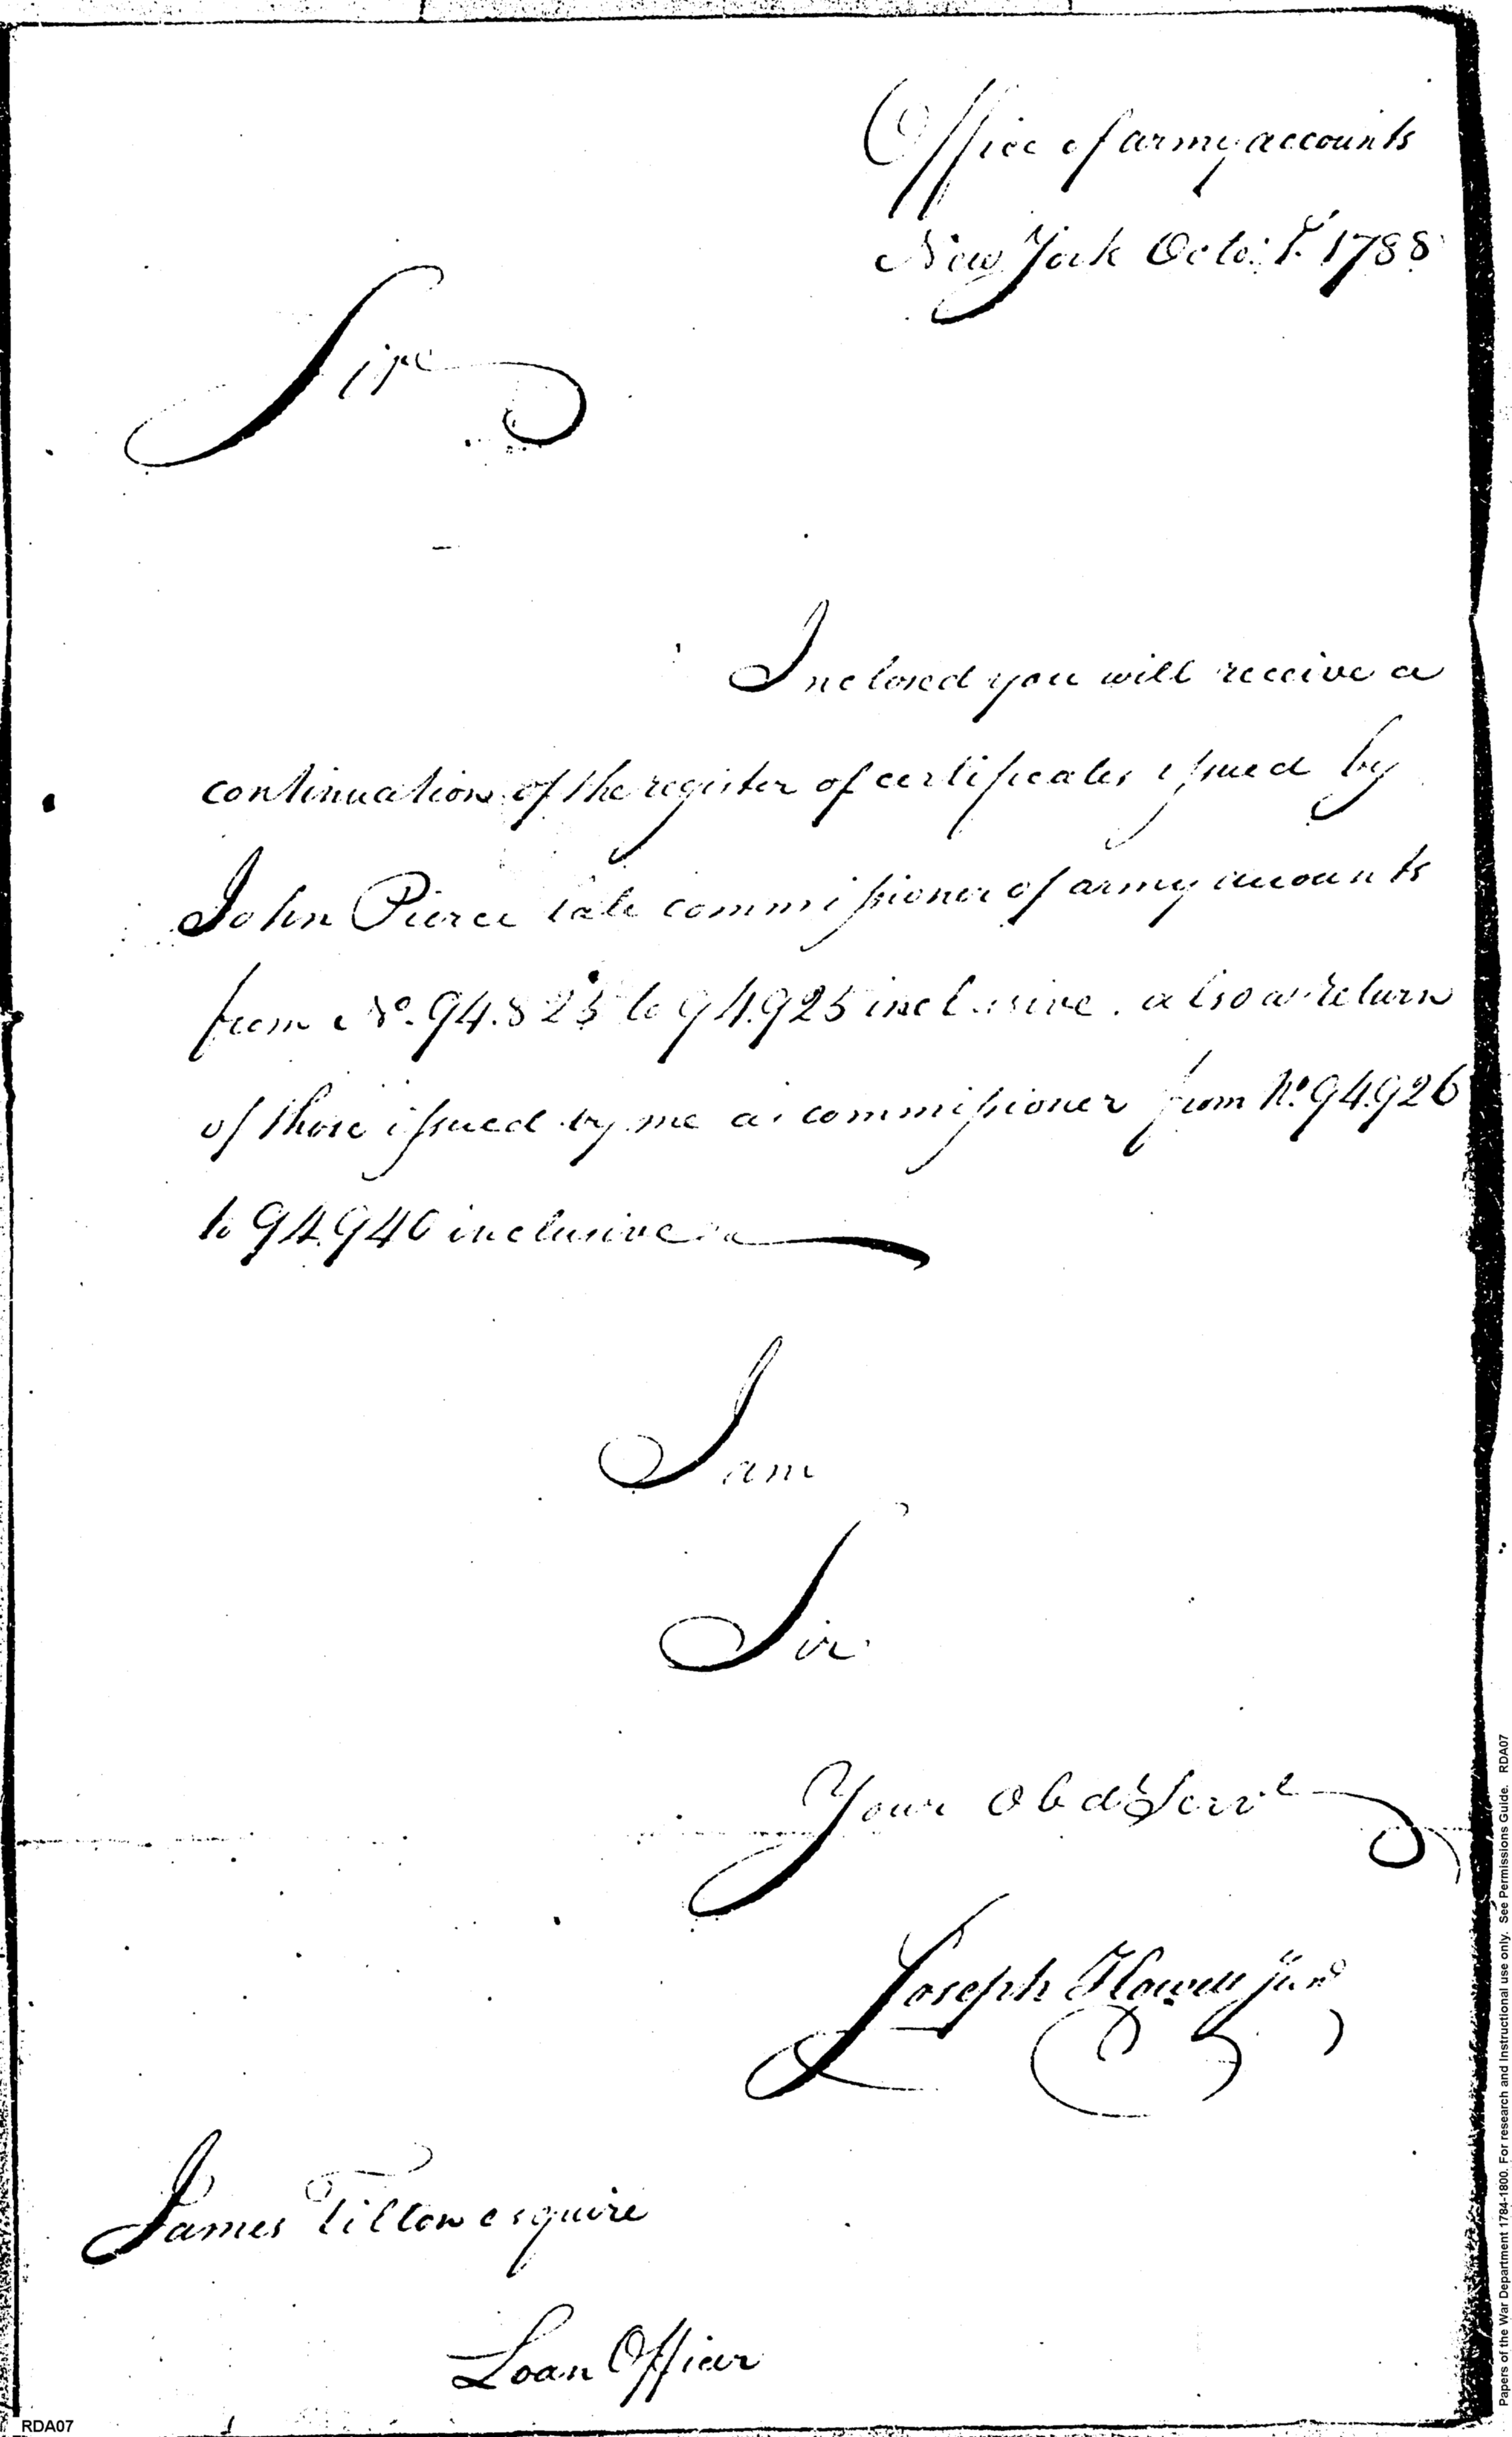 Office of army accounts
New York Octo: 1st 1788
Sir
Inclosed you will receive a
continuation of the register of certificates issued by
John Pierce late commissioner of army accounts
from No. 94.825 to 94925 inclusive. also a return
of those issued by me as commissioner from No. 94926
to 94940 inclusive
I am
Sir
Your Obdt Servt
Joseph Howell Junr
James Tilton esquire
Loan Officer
RDA07
Papers of the War Department 1784-1800. For research and instructional use only. See Permissions Guide. RDA07